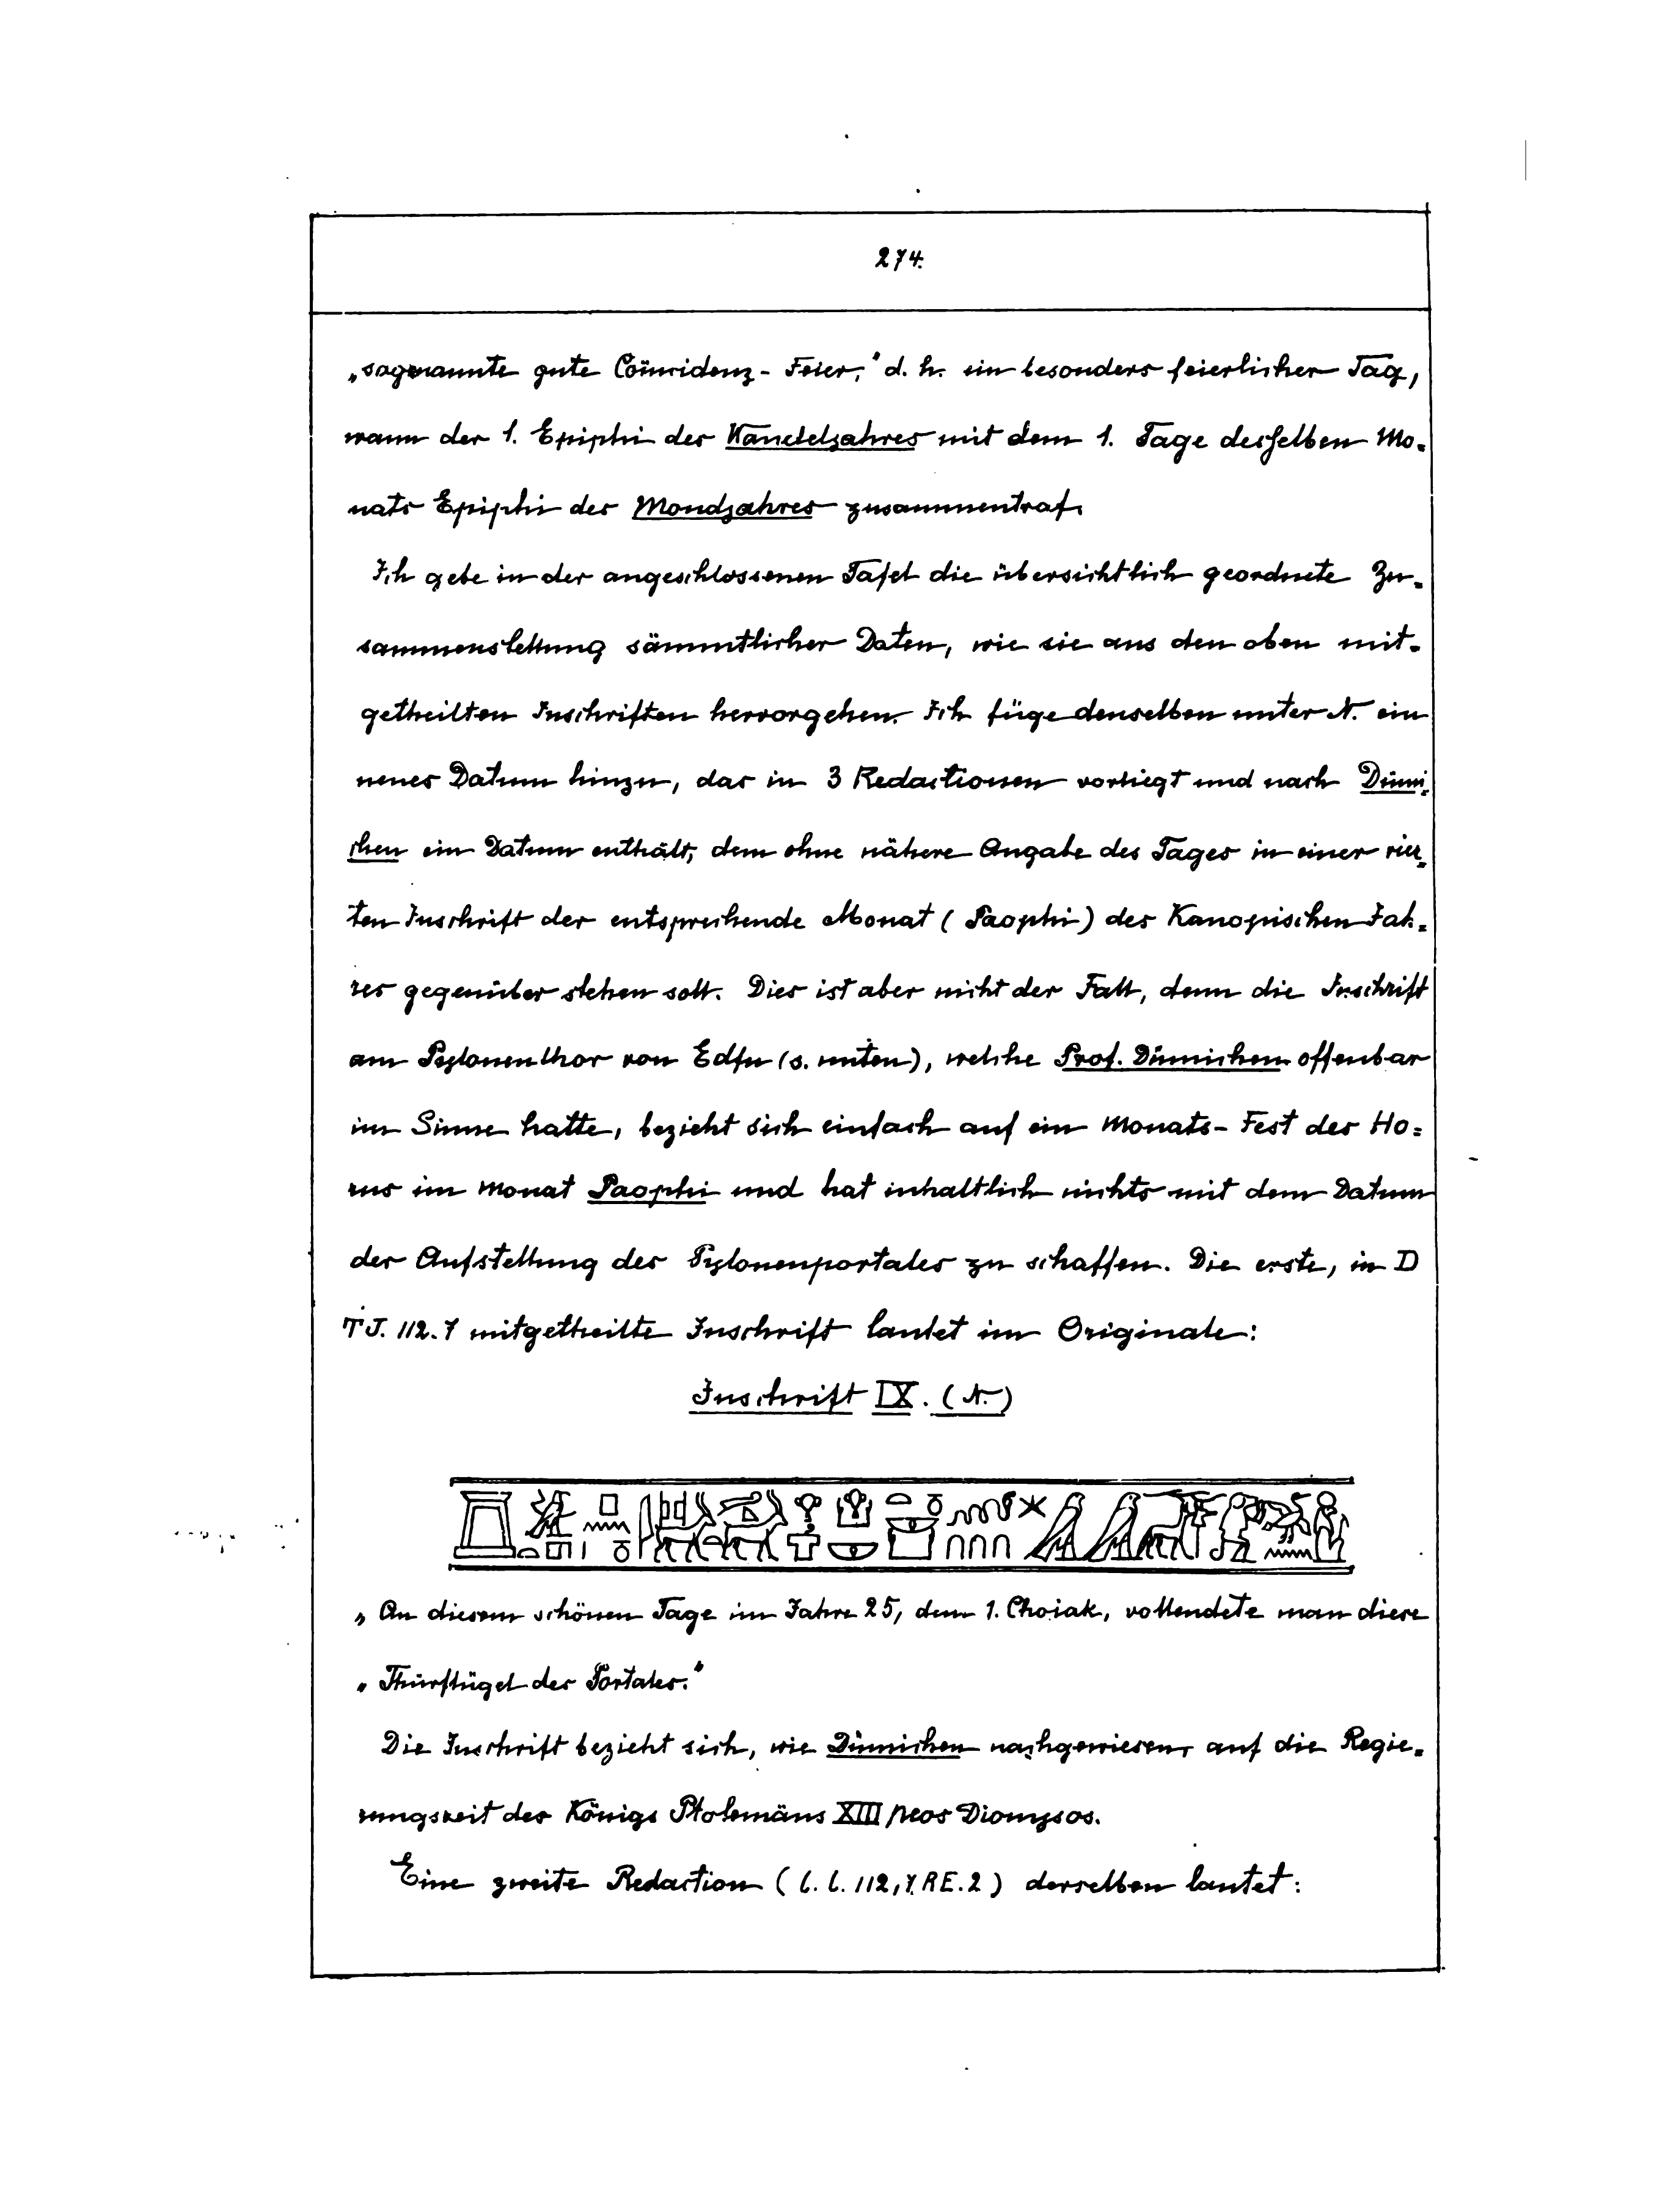 274.
„sogenannte gute Coïncidenz-Feier," d. h. ein besonders feierlicher Tag,
wann der 1. Epiphi des Wandeljahres mit dem 1. Tage desselben Mo-
nats Epiphi des Mondjahres zusammentraf.
Ich gebe in der angeschlossenen Tafel die übersichtlich geordnete Zu-
sammenstellung sämmtlicher Daten, wie sie aus den oben mit-
getheilten Inschriften hervorgehen. Ich füge denselben unter N. ein
neues Datum hinzu, das in 3 Redactionen vorliegt und nach Dümi-
chen ein Datum enthält, dem ohne nähere Angabe des Tages in einer vier-
ten Inschrift der entsprechende Monat (Paophi) des Kanopischen Jah-
res gegenüber stehen soll. Dies ist aber nicht der Fall, denn die Inschrift
am Pylonenthor von Edfu (s. unten), welche Prof. Dümichen offenbar
im Sinne hatte, bezieht sich einfach auf ein Monats-Fest des Ho-
rus im Monat Paophi und hat inhaltlich nichts mit dem Datum
der Aufstellung des Pylonenportales zu schaffen. Die erste, in D
T J. 112.7 mitgetheilte Inschrift lautet im Originale:
Inschrift IX. (N.)
„An diesem schönen Tage im Jahre 25, dem 1. Choiak, vollendete man diese
„Thürflügel des Portales."
Die Inschrift bezieht sich, wie Dümichen nachgewiesen, auf die Regie-
rungszeit des Königs Ptolemäus XIII Neos Dionysos.
Eine zweite Redaction (l. l. 112, 7. RE. 2) derselben lautet: